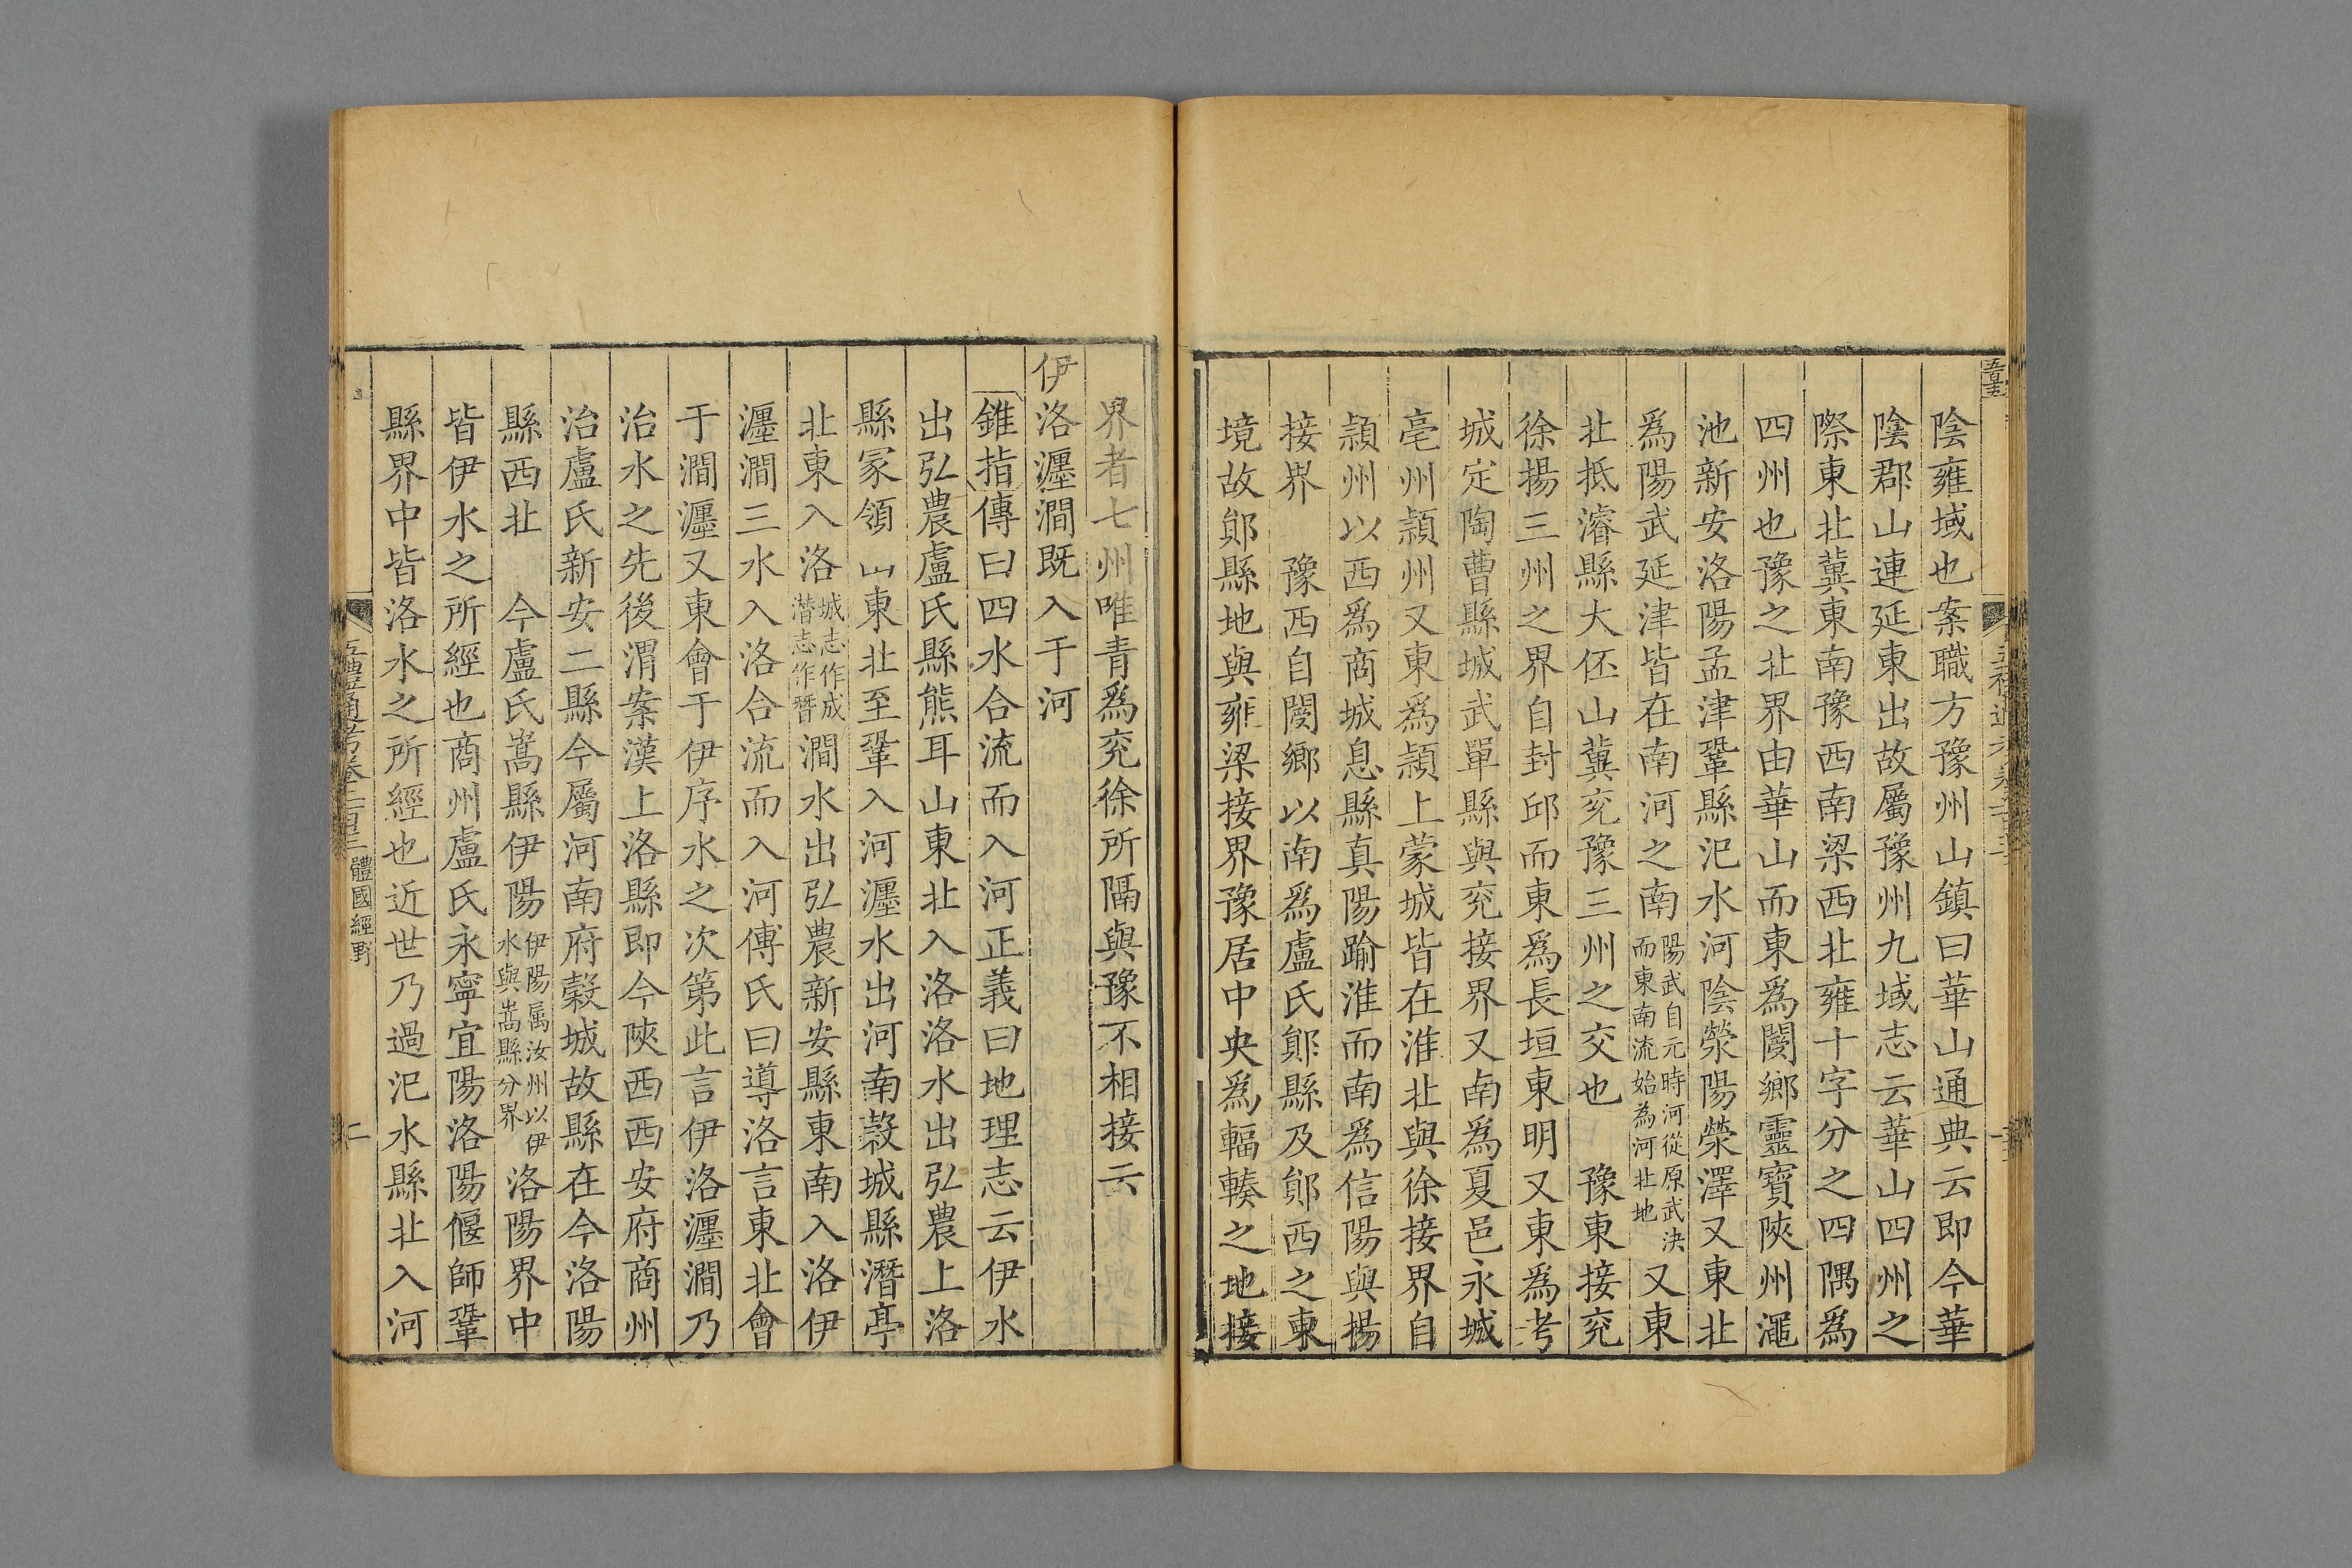 陰雍域也案職方豫州山鎮曰華山通典云即今華
陰郡山連延東出故屬豫州九域志云華山四州之
際東北冀東南豫西南梁西北雍十字分之四隅爲
四州也豫之北界由華山而東爲閿鄉靈寶陝州澠
池新安洛陽孟津鞏縣汜水河陰滎陽滎澤又東北
爲陽武延津皆在南河之南陽武自元時河從原武決而東南流始為河北地又東
北抵濬縣大伾山冀兖豫三州之交也　豫東接兖
徐揚三州之界自封邱而東爲長垣東明又東爲考
城定陶曹縣城武單縣與兖接界又南爲夏邑永城
亳州潁州又東爲潁上蒙城皆在淮北與徐接界自
潁州以西爲商城息縣真陽踰淮而南爲信陽與揚
接界　豫西自閿鄉以南爲盧氏鄖縣及鄖西之東
境故鄖縣地與雍梁接界豫居中央爲輻輳之地接
界者七州唯青爲兖徐所隔與豫不相接云
伊洛瀍澗既入于河
錐指傳曰四水合流而入河正義曰地理志云伊水
出弘農盧氏縣熊耳山東北入洛洛水出弘農上洛
縣冢領山東北至鞏入河瀍水出河南榖城縣潛亭
北東入洛城志作成潛志作朁澗水出弘農新安縣東南入洛伊
瀍澗三水入洛合流而入河傅氏曰導洛言東北會
于澗瀍又東會于伊序水之次第此言伊洛瀍澗乃
治水之先後渭案漢上洛縣即今陝西西安府商州
治盧氏新安二縣今屬河南府榖城故縣在今洛陽
縣西北　今盧氏嵩縣伊陽伊陽属汝州以伊水與嵩縣分界洛陽界中
皆伊水之所經也商州盧氏永寧宜陽洛陽偃師鞏
縣界中皆洛水之所經也近世乃過汜水縣北入河
五禮通考卷二百三
體國經野
二